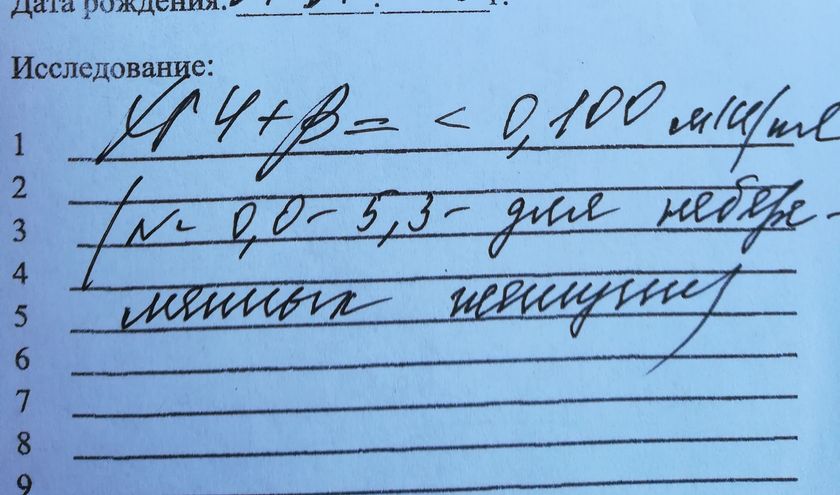 Дата рождения: г.
Исследование:
1 ХГЧ+β = < 0,100 мМЕ/мл
2
3 (N- 0,0 - 5,3 - для небере-
4
5 менных женщин)
6
7
8
9